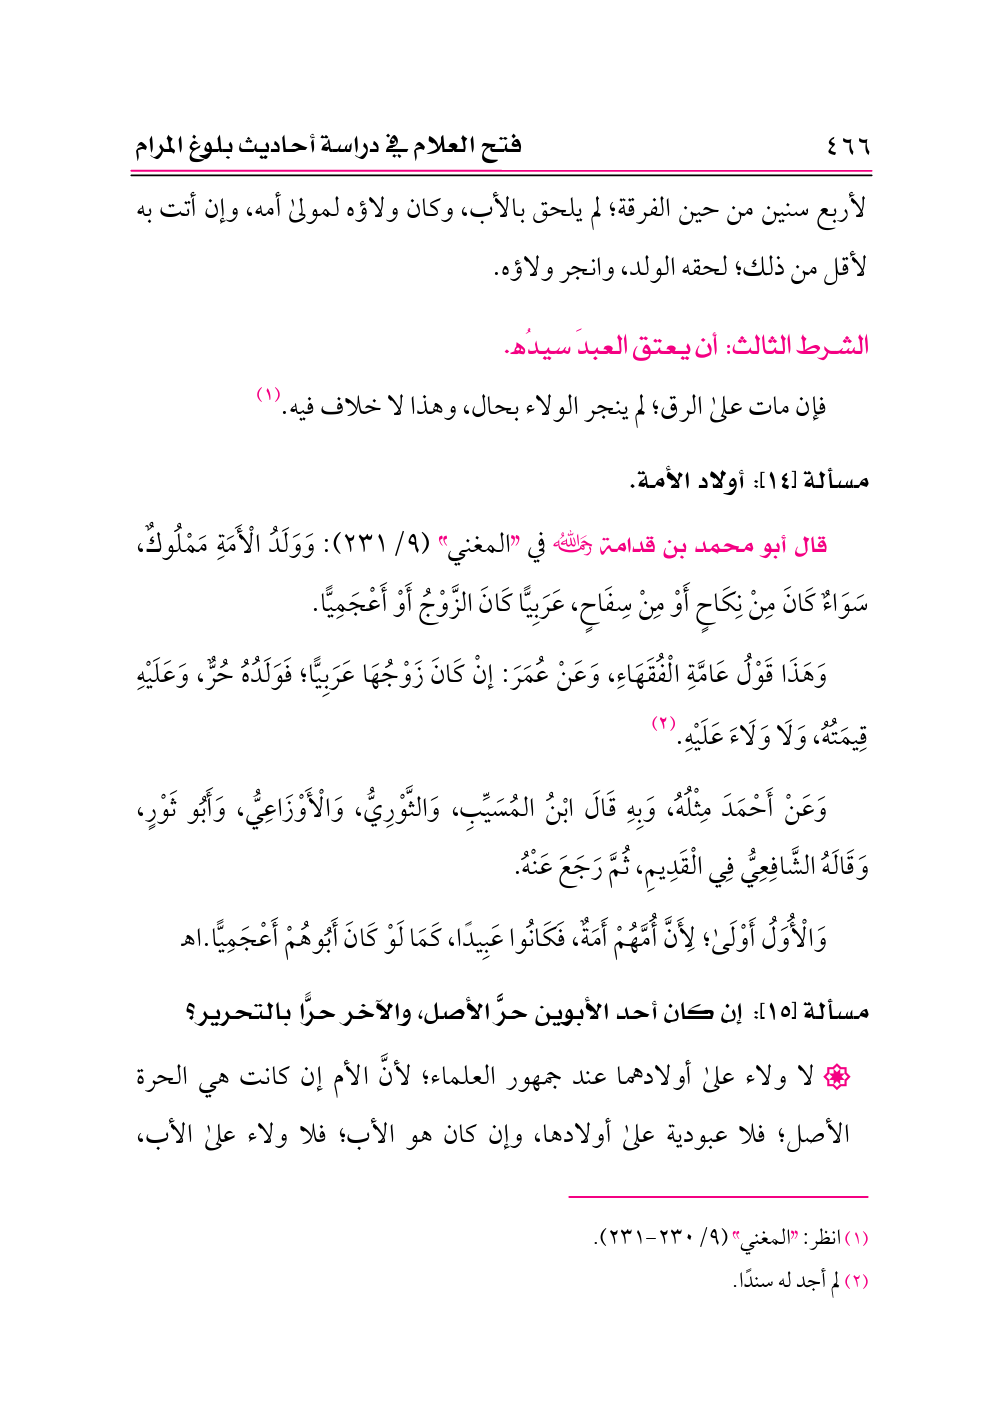 ٤٦٦ فتح العلام في دراسة أحاديث بلوغ المرام
لأربع سنين من حين الفرقة؛ لم يلحق بالأب، وكان ولاؤه لمولىٰ أمه، وإن أتت به
لأقل من ذلك؛ لحقه الولد، وانجر ولاؤه.
الشرط الثالث: أن يعتق العبدَ سيدُه.
فإن مات علىٰ الرق؛ لم ينجر الولاء بحال، وهذا لا خلاف فيه.(١)
مسألة [١٤]: أولاد الأمة.
قال أبو محمد بن قدامة رحمه الله في "المغني" (٩/ ٢٣١): وَوَلَدُ الْأَمَةِ مَمْلُوكٌ،
سَوَاءٌ كَانَ مِنْ نِكَاحٍ أَوْ مِنْ سِفَاحٍ، عَرَبِيًّا كَانَ الزَّوْجُ أَوْ أَعْجَمِيًّا.
وَهَذَا قَوْلُ عَامَّةِ الْفُقَهَاءِ، وَعَنْ عُمَرَ: إنْ كَانَ زَوْجُهَا عَرَبِيًّا؛ فَوَلَدُهُ حُرٌّ، وَعَلَيْهِ
قِيمَتُهُ، وَلَا وَلَاءَ عَلَيْهِ.(٢)
وَعَنْ أَحْمَدَ مِثْلُهُ، وَبِهِ قَالَ ابْنُ المُسَيِّبِ، وَالثَّوْرِيُّ، وَالْأَوْزَاعِيُّ، وَأَبُو ثَوْرٍ،
وَقَالَهُ الشَّافِعِيُّ فِي الْقَدِيمِ، ثُمَّ رَجَعَ عَنْهُ.
وَالْأَوَّلُ أَوْلَىٰ؛ لِأَنَّ أُمَّهُمْ أَمَةٌ، فَكَانُوا عَبِيدًا، كَمَا لَوْ كَانَ أَبُوهُمْ أَعْجَمِيًّا.اهـ
مسألة [١٥]: إن كان أحد الأبوين حرَّ الأصل، والآخر حرًّا بالتحرير؟
لا ولاء علىٰ أولادهما عند جمهور العلماء؛ لأنَّ الأم إن كانت هي الحرة
الأصل؛ فلا عبودية علىٰ أولادها، وإن كان هو الأب؛ فلا ولاء علىٰ الأب،
(١) انظر: "المغني" (٩/ ٢٣٠-٢٣١).
(٢) لم أجد له سندًا.